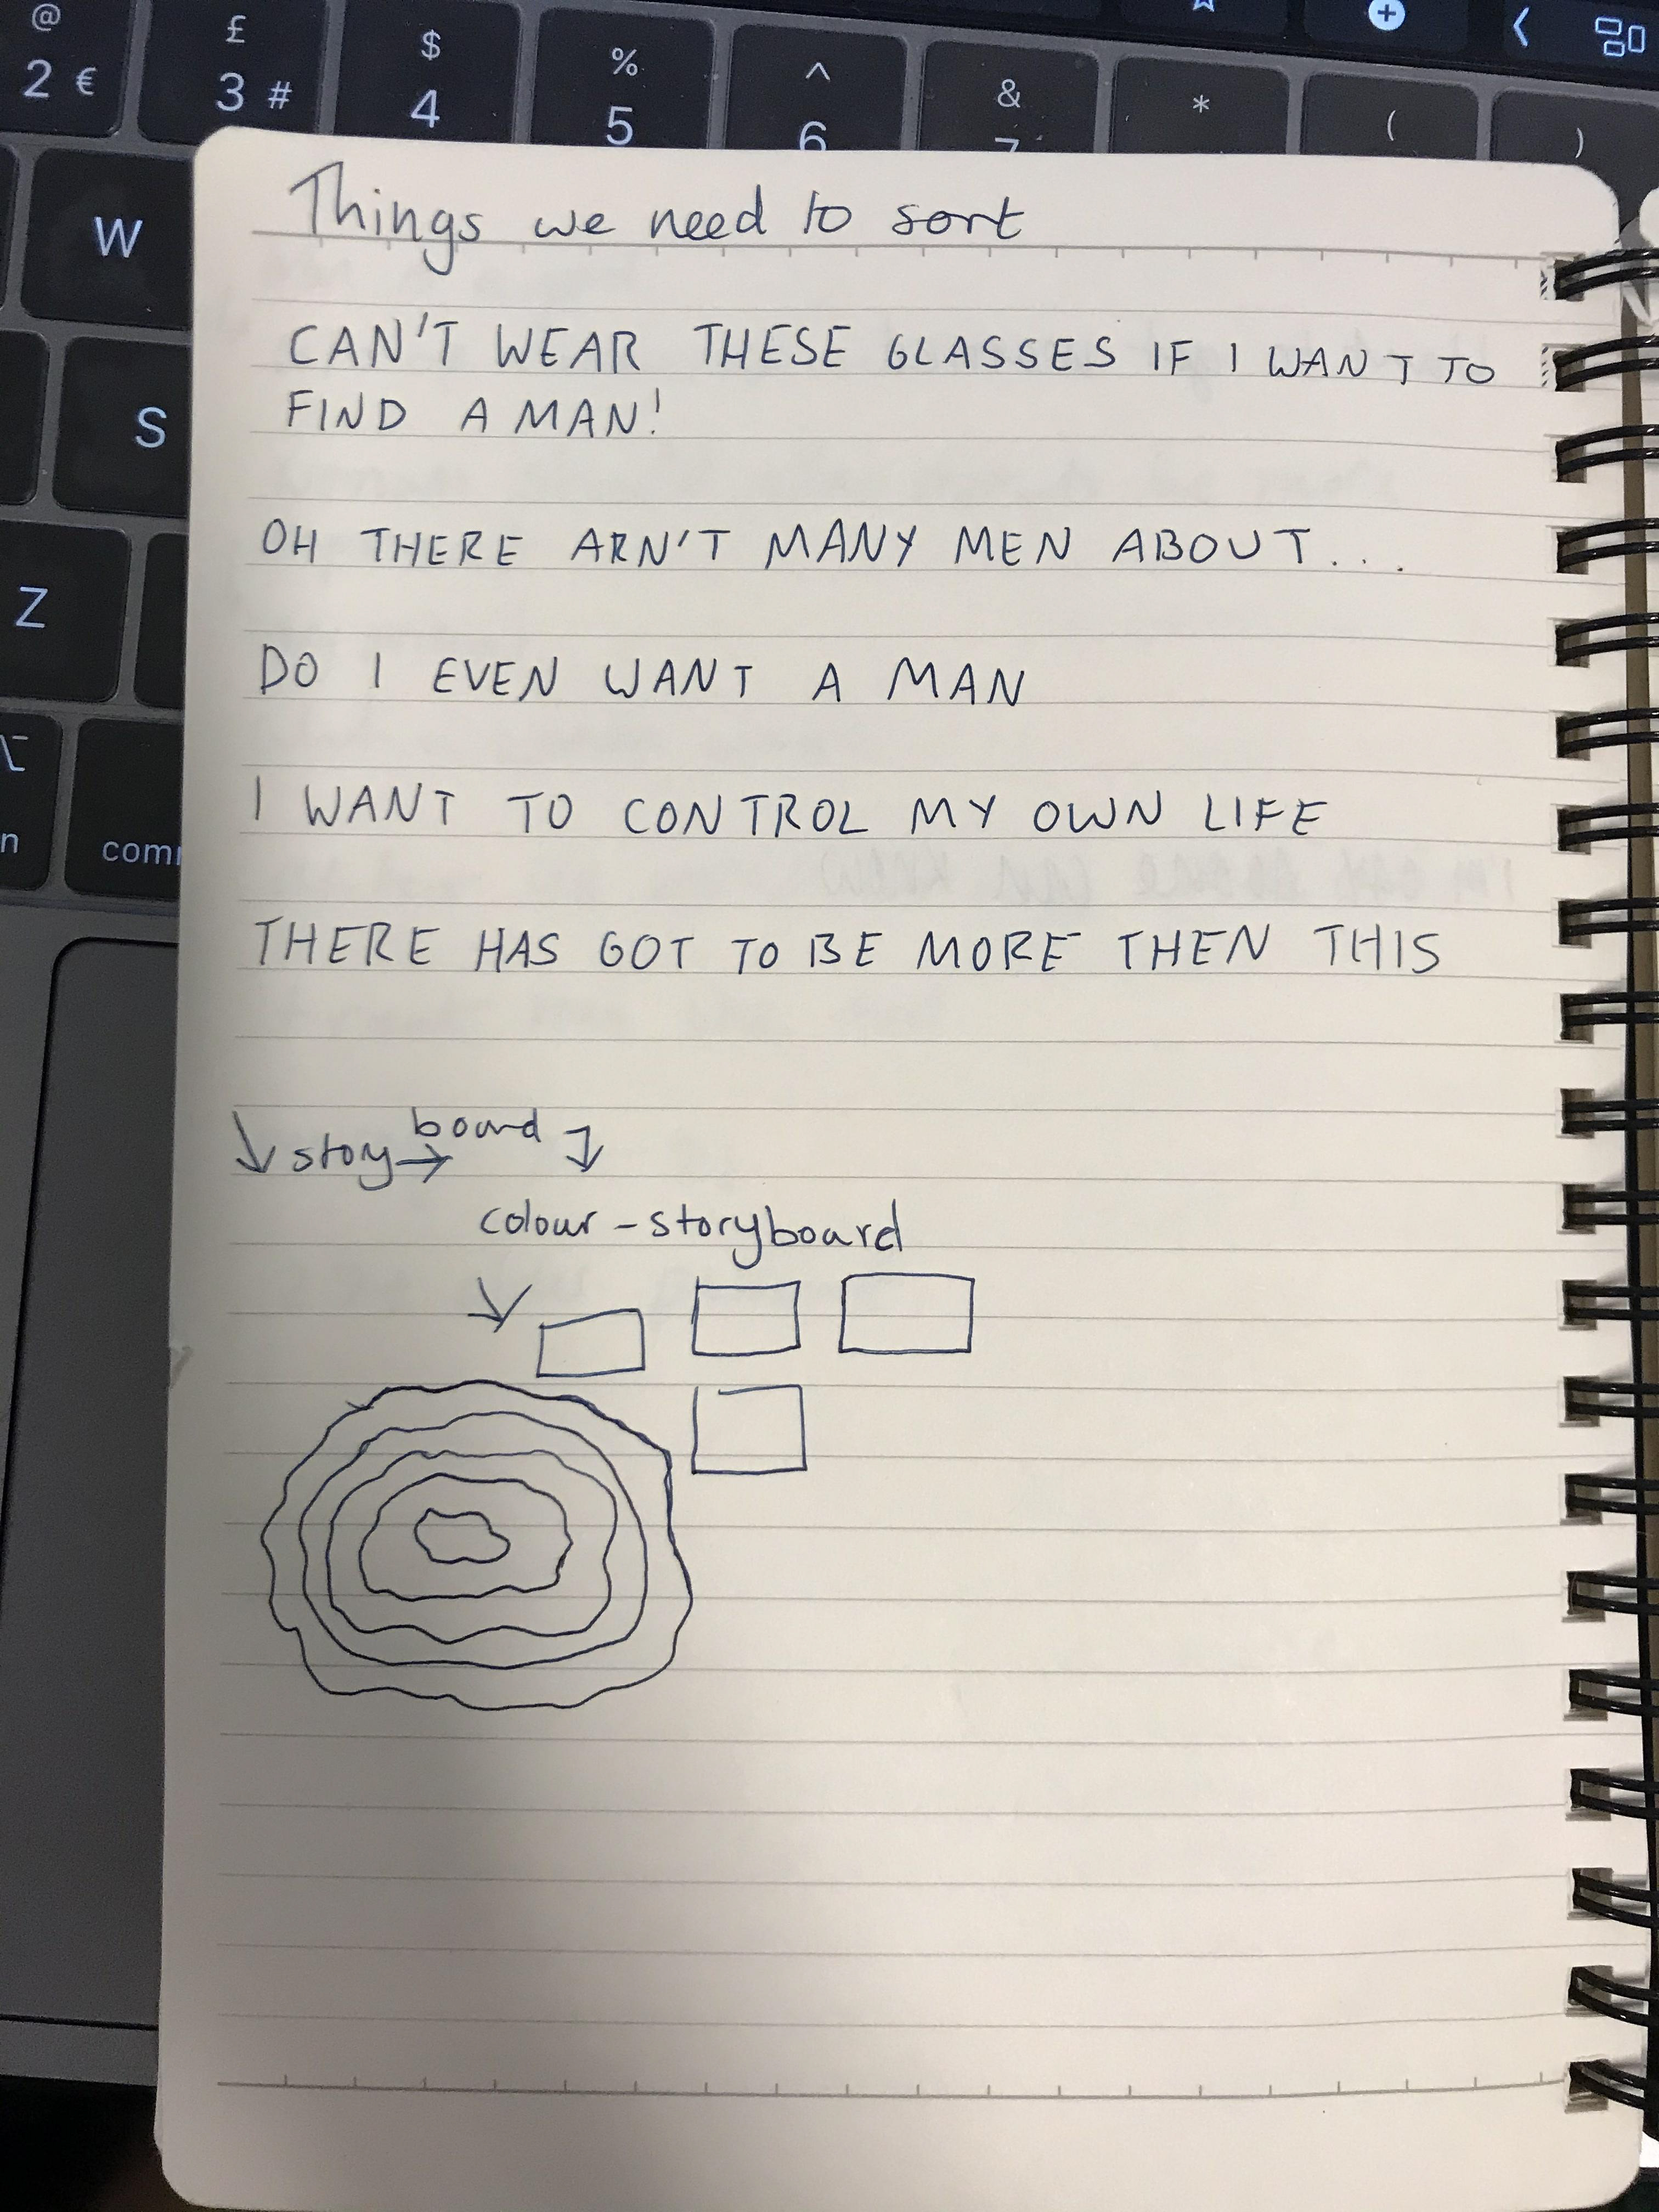 @
2 €
£
3 #
$
4
%
5
^
6
&
7
*
(
)
W
S
Z
Things we need to sort
CAN'T WEAR THESE GLASSES IF I WANT TO
FIND A MAN!
OH THERE ARN'T MANY MEN ABOUT...
DO I EVEN WANT A MAN
I WANT TO CONTROL MY OWN LIFE
THERE HAS GOT TO BE MORE THEN THIS
↓ story → board ↓
colour - storyboard